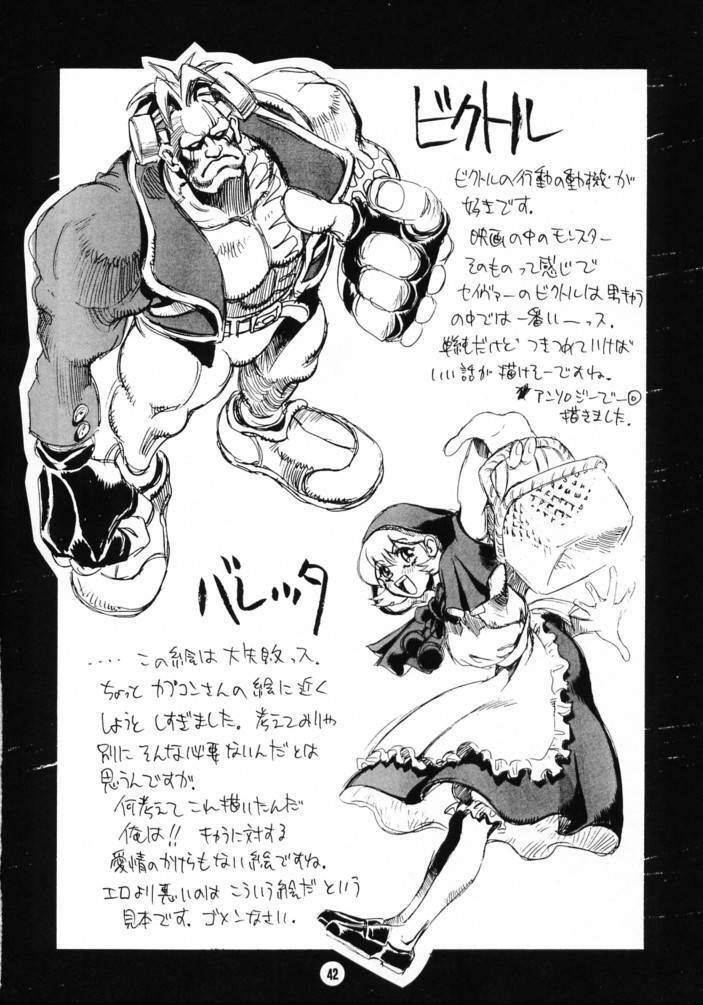 ビクトル
ビクトルの行動の動機が
好きです。
映画の中のモンスター
そのものって感じで
セイヴァーのビクトルは男キャラ
の中では一番いーっス。
単純だけど つきつめていけば
いい話が描けそーですね。
アンソロジーでー
描きました。
バレッタ
.... この絵は大失敗っス.
ちょっと カプコンさんの絵に近く
しようと しすぎました。考えてみりゃ
別に そんな必要ないんだとは
思うんですが.
何考えて これ描いたんだ
俺は!! キャラに対する
愛情のかけらもない絵ですね.
エロより悪いのは こういう絵だ という
見本です. ゴメンなさい.
42